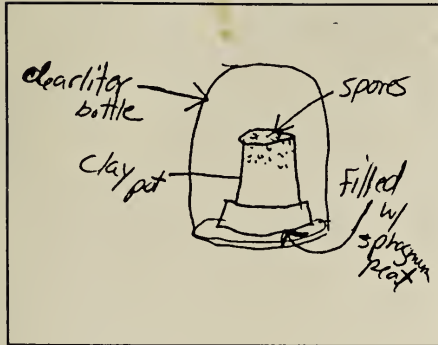 clear liter
bottle
spores
clay
pot
Filled
w/
sphagnum
peat